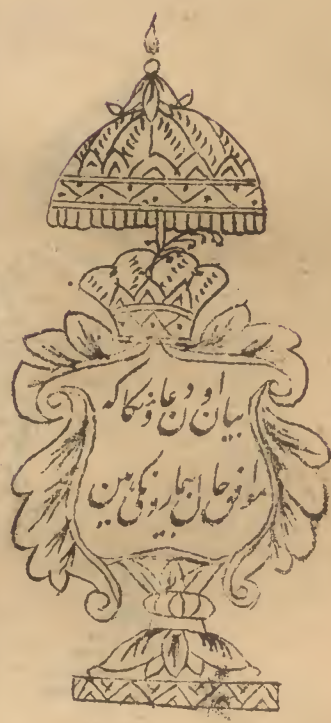 بیان اون دعاؤنکا کہ
موافق حال بیمارونکی ہین